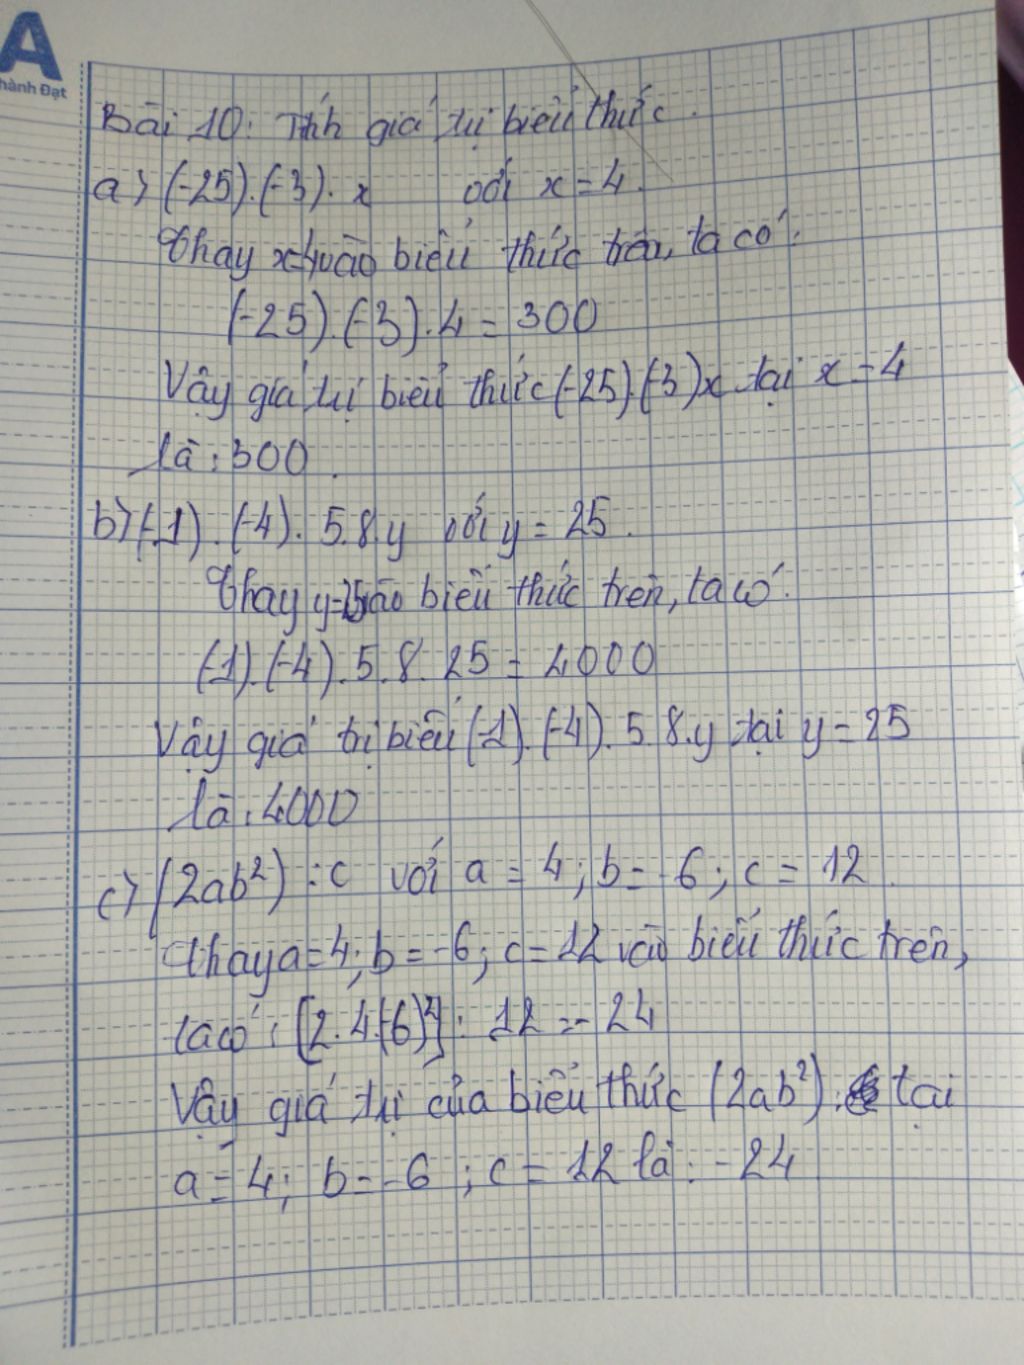 A
hành Đạt
Bài 10: Tính giá trị biểu thức.
a) (-25).(-3).x với x = 4.
Thay x=4 vào biểu thức trên, ta có:
(-25).(-3).4 = 300
Vậy giá trị biểu thức (-25).(-3)x tại x = 4
là : 300.
b) (-1).(-4).5.8.y với y = 25.
Thay y=25 vào biểu thức trên, ta có:
(-1).(-4).5.8.25 = 4000
Vậy giá trị biểu (-1).(-4).5.8.y tại y = 25
là : 4000
c) (2ab²) : c với a = 4; b = -6; c = 12.
Thay a=4; b = -6; c = 12 vào biểu thức trên,
ta có : [2.4.(-6)²] : 12 = -24
Vậy giá trị của biểu thức (2ab²) : tại
a = 4; b = -6 ; c = 12 là : -24